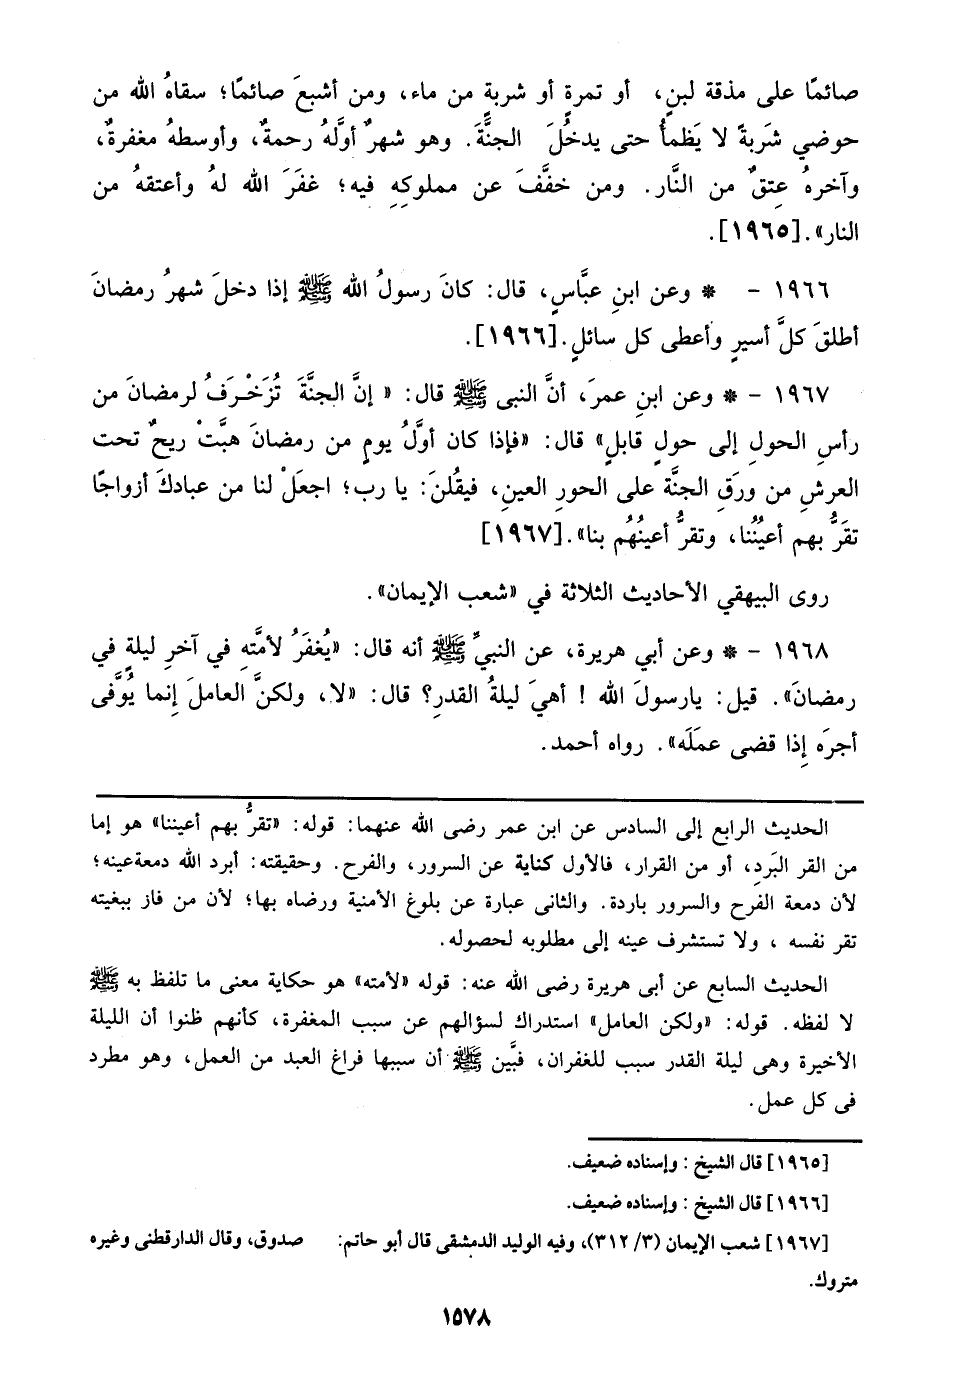 صائمًا على مذقة لبنٍ، أو تمرةٍ أو شربةٍ من ماء، ومن أشبعَ صائمًا؛ سقاهُ الله من
حوضي شَربةً لا يَظمأُ حتى يدخُلَ الجنَّةَ. وهو شهرٌ أوَّلهُ رحمةٌ، وأوسطهُ مغفرةٌ،
وآخرهُ عِتقٌ من النَّار. ومن خفَّفَ عن مملوكِهِ فيه؛ غفَرَ الله لهُ وأعتقهُ من
النار».[١٩٦٥].
١٩٦٦ - * وعن ابنِ عبَّاسٍ، قال: كانَ رسولُ الله ﷺ إذا دخلَ شهرُ رمضانَ
أطلقَ كلَّ أسيرٍ وأعطى كل سائلٍ.[١٩٦٦].
١٩٦٧ - * وعن ابنِ عمرَ، أنَّ النبى ﷺ قال: « إنَّ الجنَّةَ تُزَخْرَفُ لرمضانَ من
رأسِ الحولِ إلى حولٍ قابلٍ» قال: «فإذا كان أوَّلُ يومٍ من رمضانَ هبَّتْ ريحٌ تحت
العرشِ من ورَقِ الجنَّة على الحورِ العينِ، فيقُلنَ: يا رب؛ اجعَلْ لنا من عبادكَ أزواجًا
تقَرُّ بهم أعيُنُنا، وتقرُّ أعينُهُم بنا».[١٩٦٧]
روى البيهقي الأحاديث الثلاثة في «شعب الإيمان».
١٩٦٨ - * وعن أبي هريرة، عن النبيِّ ﷺ أنه قال: «يُغفَرُ لأمَّتهِ في آخرِ ليلةٍ في
رمضانَ». قيل: يارسولَ الله ! أهيَ ليلةُ القدرِ؟ قال: «لا، ولكنَّ العاملَ إنما يُوَفَّى
أجرَه إذا قضى عمَلَه». رواه أحمد.
الحديث الرابع إلى السادس عن ابن عمر رضى الله عنهما: قوله: «تقرُّ بهم أعيننا» هو إما
من القر البَردِ، أو من القرار، فالأول كناية عن السرور، والفرح. وحقيقته: أبرد الله دمعةعينه؛
لأن دمعة الفرح والسرور باردة. والثانى عبارة عن بلوغ الأمنية ورضاه بها؛ لأن من فاز ببغيته
تقر نفسه ، ولا تستشرف عينه إلى مطلوبه لحصوله.
الحديث السابع عن أبى هريرة رضى الله عنه: قوله «لأمته» هو حكاية معنى ما تلفظ به ﷺ
لا لفظه. قوله: «ولكن العامل» استدراك لسؤالهم عن سبب المغفرة، كأنهم ظنوا أن الليلة
الأخيرة وهى ليلة القدر سبب للغفران، فبَّين ﷺ أن سببها فراغ العبد من العمل، وهو مطرد
فى كل عمل.
[١٩٦٥] قال الشيخ : وإسناده ضعيف.
[١٩٦٦] قال الشيخ : وإسناده ضعيف.
[١٩٦٧] شعب الإيمان (٣/ ٣١٢)، وفيه الوليد الدمشقى قال أبو حاتم: صدوق، وقال الدارقطنى وغيره
متروك.
١٥٧٨